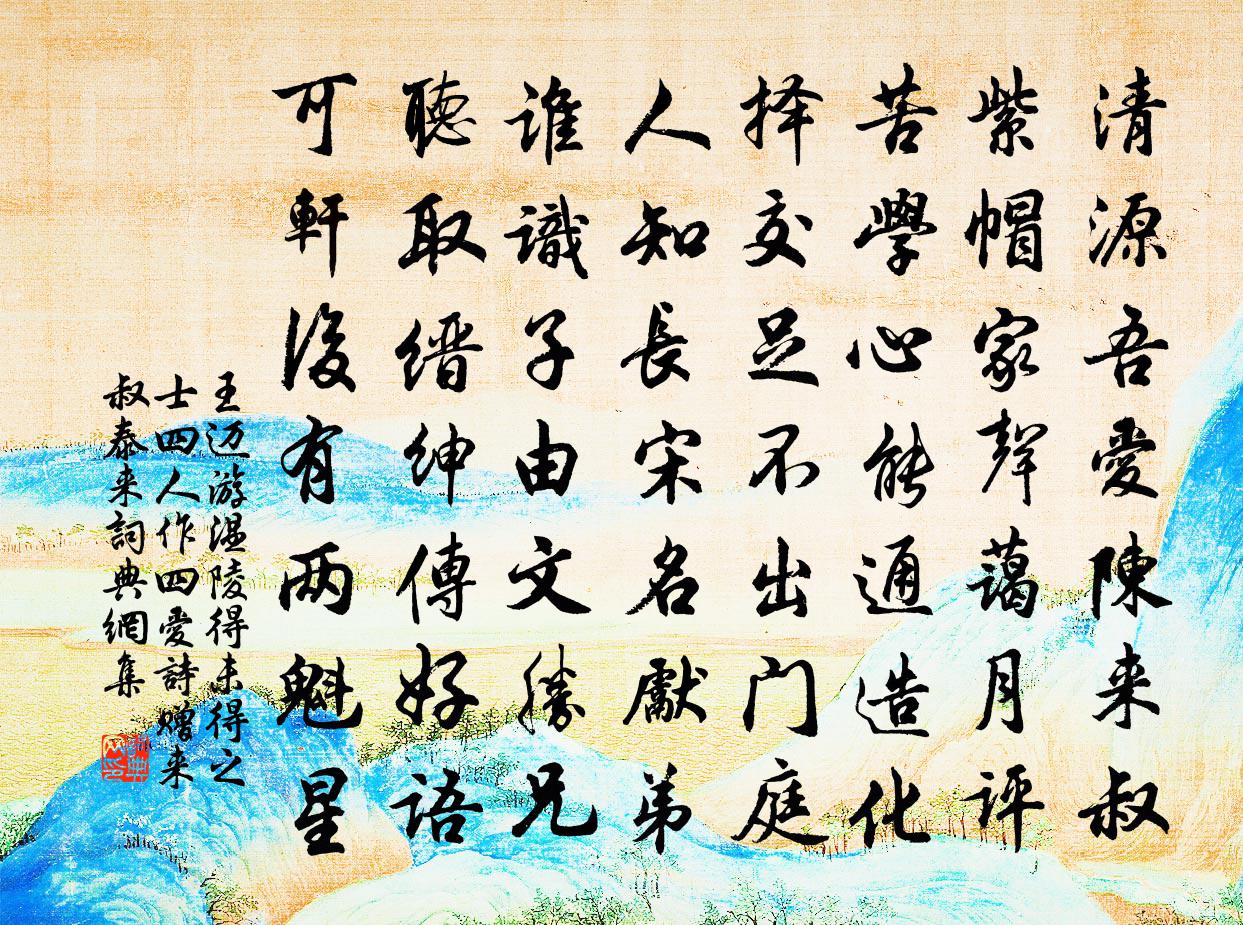 清源吾愛陳来叔
紫帽家聲藹月评
苦學心能通造化
择交足不出门庭
人知長宋名獻弟
谁識子由文勝兄
聽取缙绅傳好语
可軒後有两魁星
王迈游温陵得未得之
士四人作四愛詩赠来
叔泰来詞典網集